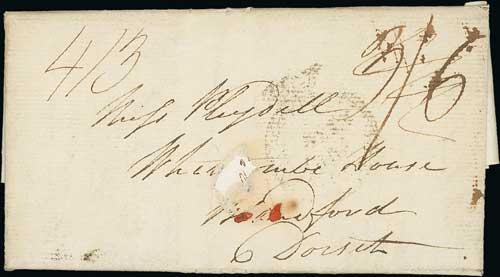 4/3 3/6
Miss Pleydell
Whatcombe House
Blandford
Dorset